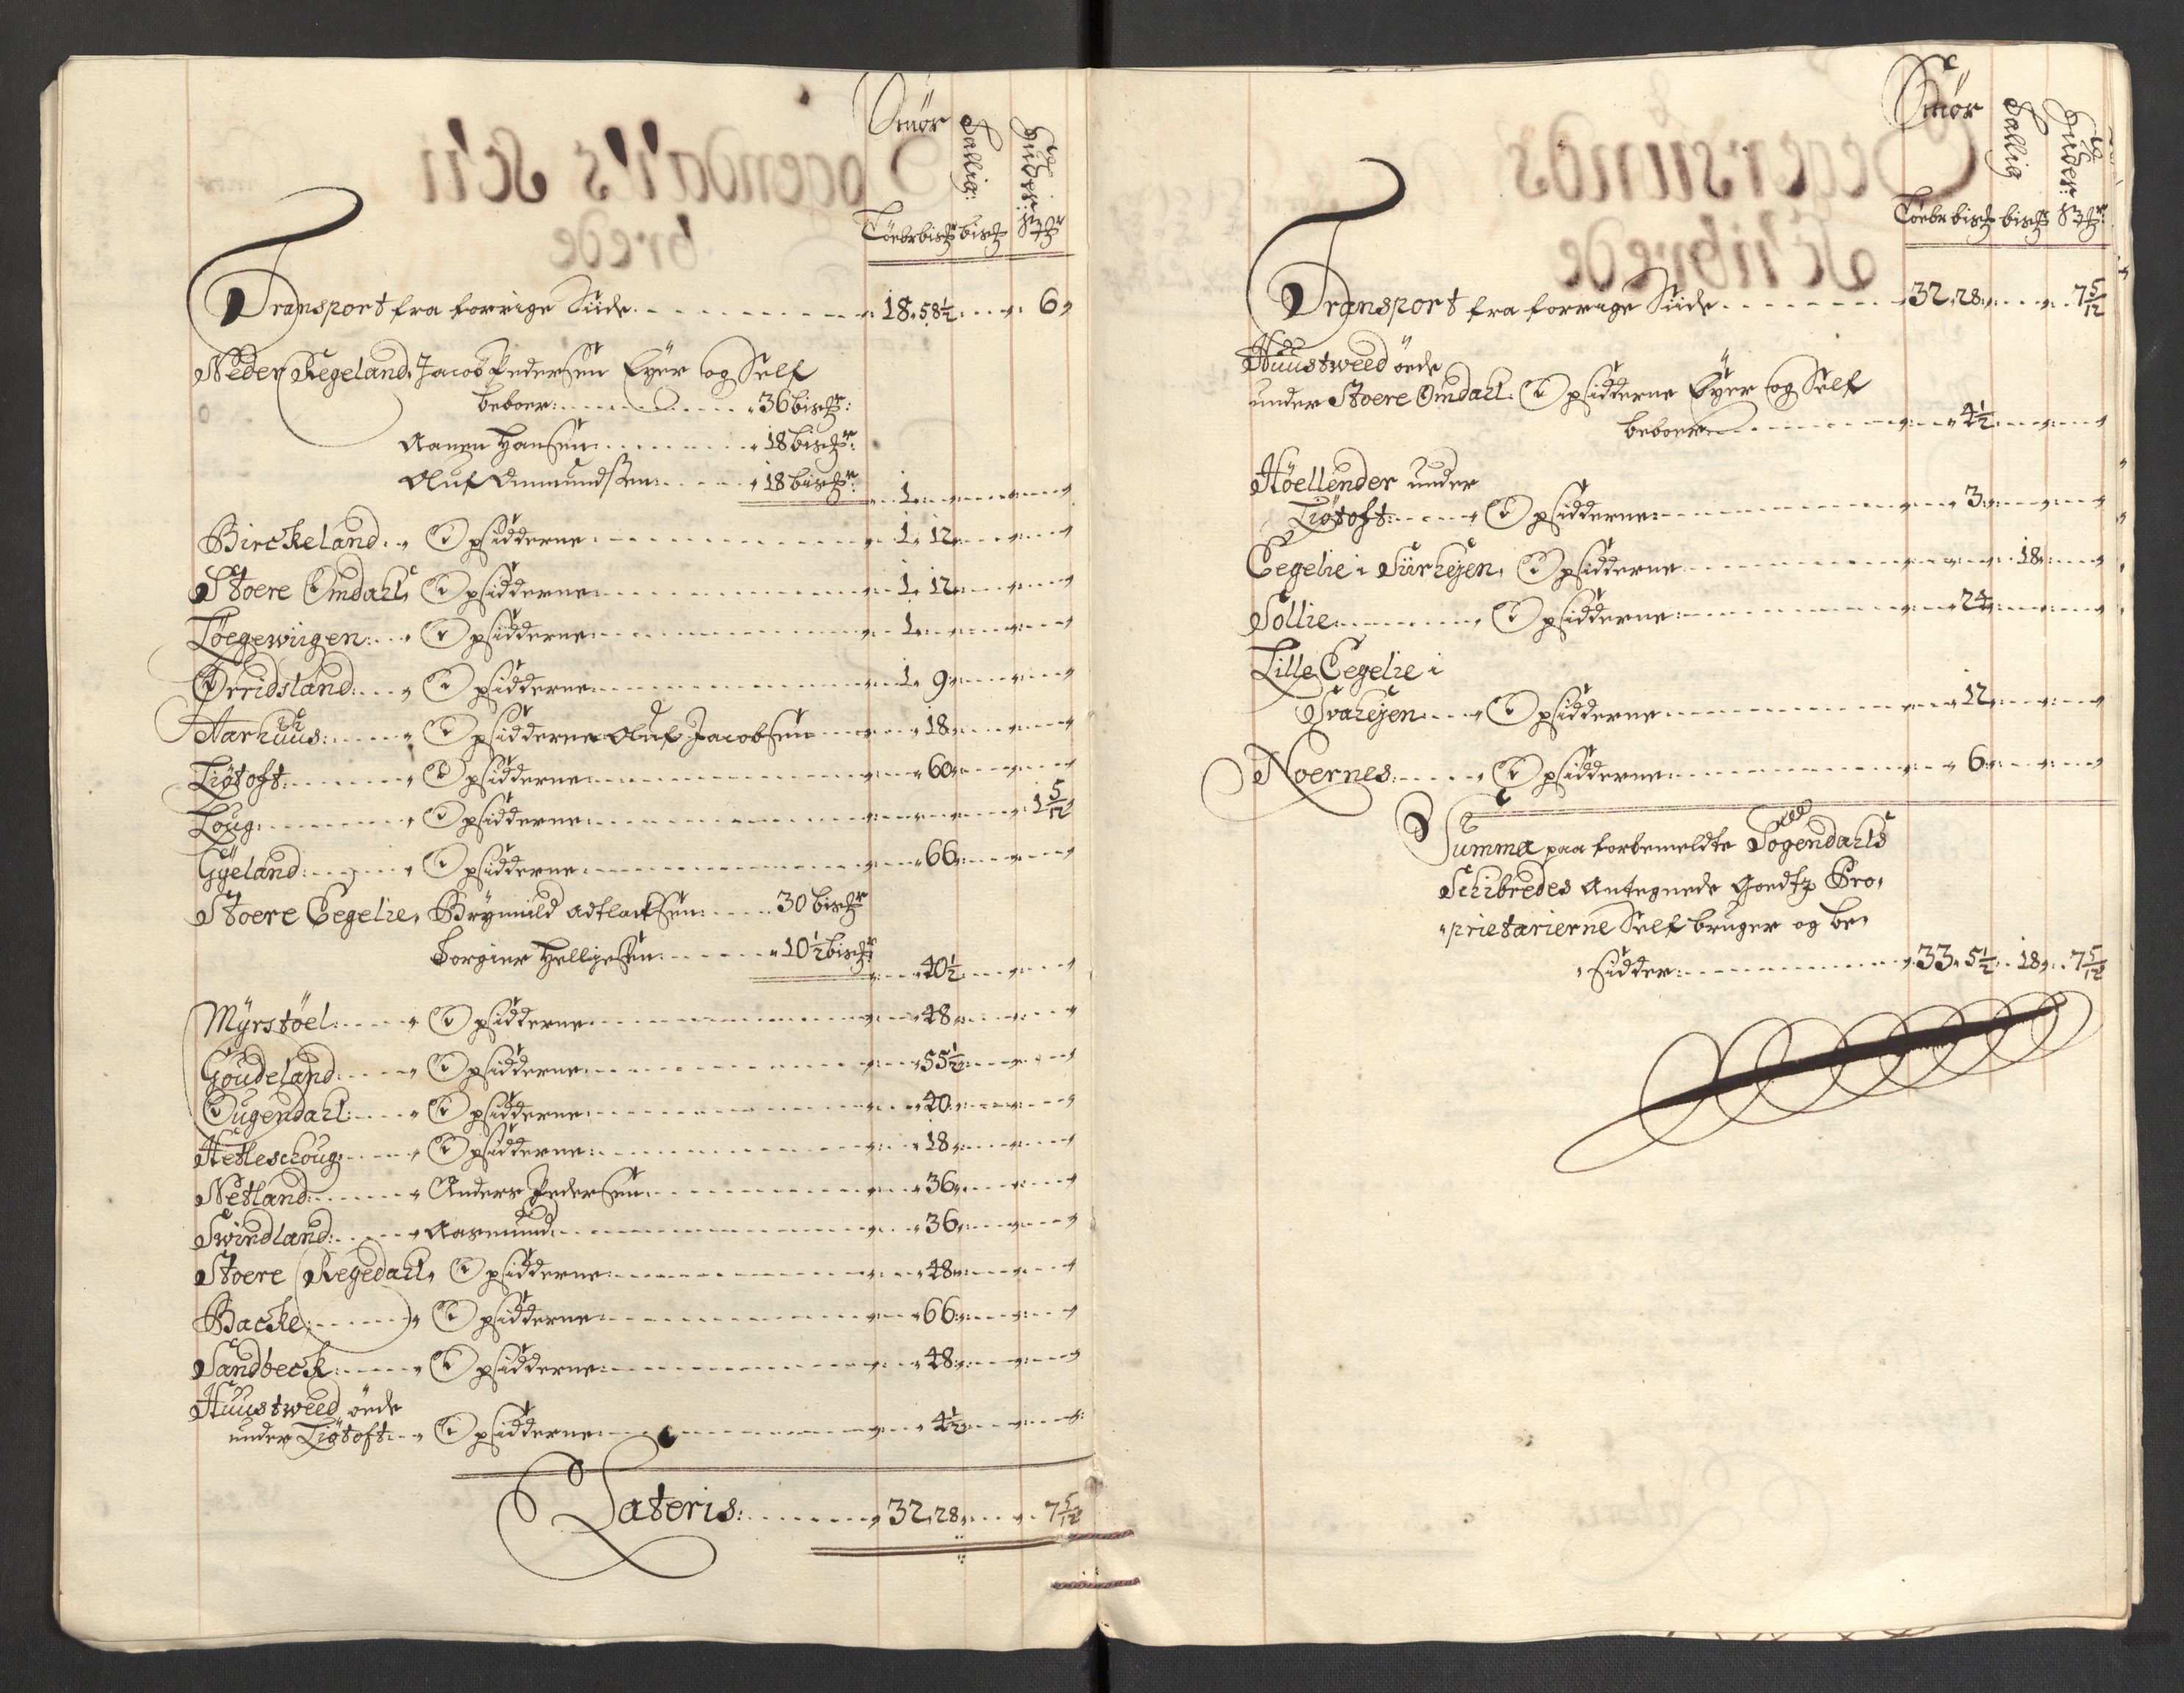 Smör Tallig: Huder:
Löebr bispd bispd
Transport fra forrige Siide . . . 18 . 58½ . . . 6
Neder Regeland, Jacob Pedersen Eyer og Self
beboer: . . . 36 bispd:
Aanen Hansen . . . 18 bispd:
Oluf Ommundsen . . . 18 bispd: . . . 1
Birckeland . . . Opsidderne . . . 1 . 12
Stoere Omdahl, Opsidderne . . . 1 . 12
Löegewiigen . . . Opsidderne . . . 1
Örridsland . . . Opsidderne . . . 1 . 9
Aarhuus: . . . Opsidderne Oluf Jacobsen . . . 18
Liötoft: . . . Opsidderne . . . 60
Loug: . . . Opsidderne . . . 1 5/12
Gyeland: . . . Opsidderne . . . 66
Stoere Eegelie, Brynnild . . . 30 bispd
Torgier Helliesen . . . 10½ bispd: . . . 40½
Myrstöel: . . . Opsidderne . . . 48
Goudeland: . . . Opsidderne . . . 55½
Ougendahl: . . . Opsidderne . . . 40
Hetleschoug: . . . Opsidderne . . . 18
Netland: . . . Anders Pedersen . . . 36
Swindland: . . . Aasmund . . . 36
Stoere Regedahl, Opsidderne . . . 48
Backe: . . . Opsidderne . . . 66
Sandbeck: . . . Opsidderne . . . 48
Huustweed öede
under Liötoft: . . . Opsidderne . . . 4½
Lateris: . . . 32 . 28 . . . 7 5/12
Smör Tallig Huder:
Löebr bispd bispd
Transport fra forrige Siide . . . 32 . 28 . . . 7 5/12
Huustweed öede
under Stoere Omdahl. Opsidderne Eyer og Self
beboer . . . 4½
Höellender under
Liötoft: . . . Opsidderne: . . . 3
Eegelie i Siirhejen, Opsidderne . . . 18
Sollie . . . Opsidderne . . . 24
Lille Eegelie i
Svahejen . . . Opsidderne . . . 12
Noernes: . . . Opsidderne . . . 6
Summa paa forbemeldte Sogendahls
Schibredes Antegnede Goedtz Pro,
prietarierne Self bruger og be,
sidder: . . . 33 . 5½ . 18 . 7 5/12